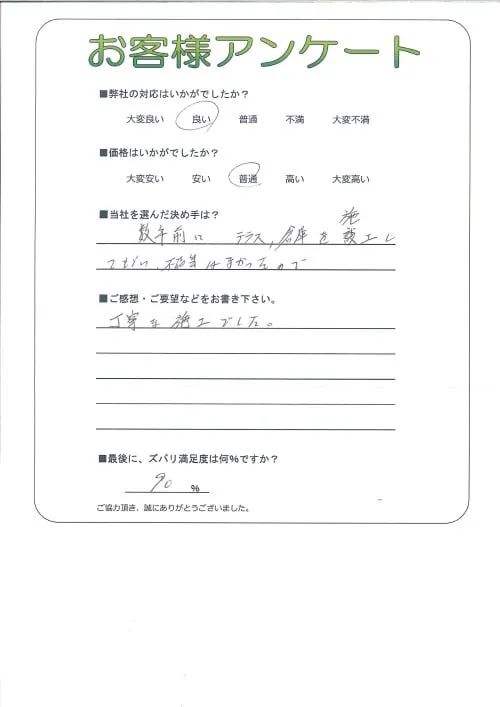 お客様アンケート
■弊社の対応はいかがでしたか？
大変良い 良い 普通 不満 大変不満
■価格はいかがでしたか？
大変安い 安い 普通 高い 大変高い
■当社を選んだ決め手は？
施
数年前に テラス,倉庫を設工し
てもらい、不都合はなかったので
■ご感想・ご要望などをお書き下さい。
丁寧な施工でした。
■最後に、ズバリ満足度は何%ですか？
90 %
ご協力頂き、誠にありがとうございました。